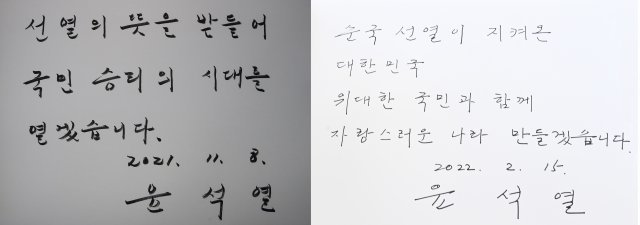 선열의 뜻을 받들어
국민 승리의 시대를
열겠습니다.
2021. 11. 8.
윤 석 열
순국 선열이 지켜온
대한민국
위대한 국민과 함께
자랑스러운 나라 만들겠습니다.
2022. 2. 15.
윤 석 열